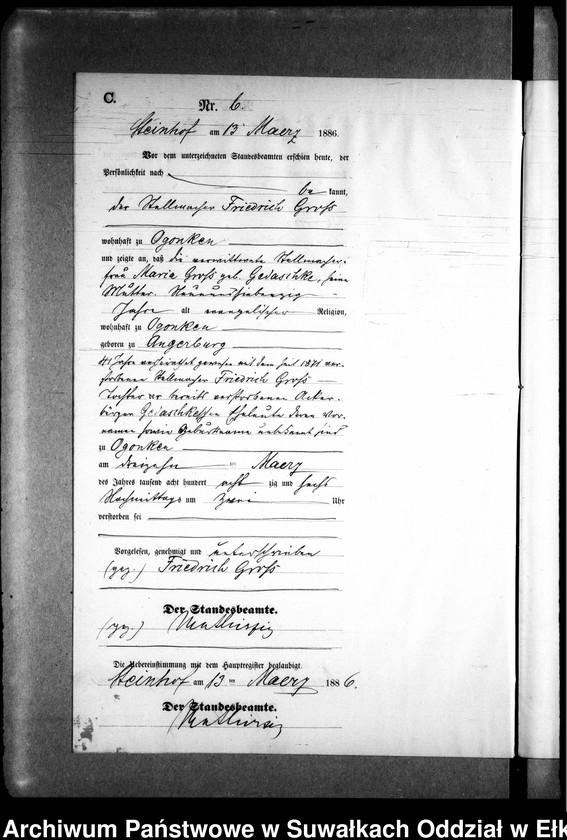 C.
Nr. 6.
Steinhof am 13 Maerz 1886.
Vor dem unterzeichneten Standesbeamten erschien heute, der
Persönlichkeit nach
be kannt,
der Stellmacher Friedrich Groß
wohnhaft zu Ogonken
und zeigte an, daß die verwittwete Stellmacher-
frau Maria Groß geb. Gedaschke, seine
Mutter, Neunundsiebenzig
Jahre alt evangelischer Religion,
wohnhaft zu Ogonken
geboren zu Angerburg
41 Jahre verheirathet gewesen mit dem seit 1871 ver-
storbenen Stellmacher Friedrich Groß
Tochter der bereits verstorbenen Acker-
bürger Gedaschkeschen Eheleute deren Vor-
namen sowie Geburtsname unbekannt sind
zu Ogonken
am dreizehn ten Maerz
des Jahres tausend acht hundert acht zig und sechs
Nachmittags um zwei Uhr
verstorben sei
Vorgelesen, genehmigt und unterschrieben
(gez.) Friedrich Groß
Der Standesbeamte.
(gez.)
Die Uebereinstimmung mit dem Hauptregister beglaubigt.
Steinhof am 13 ten Maerz 1886.
Der Standesbeamte.
Archiwum Państwowe w Suwałkach Oddział w Ełk